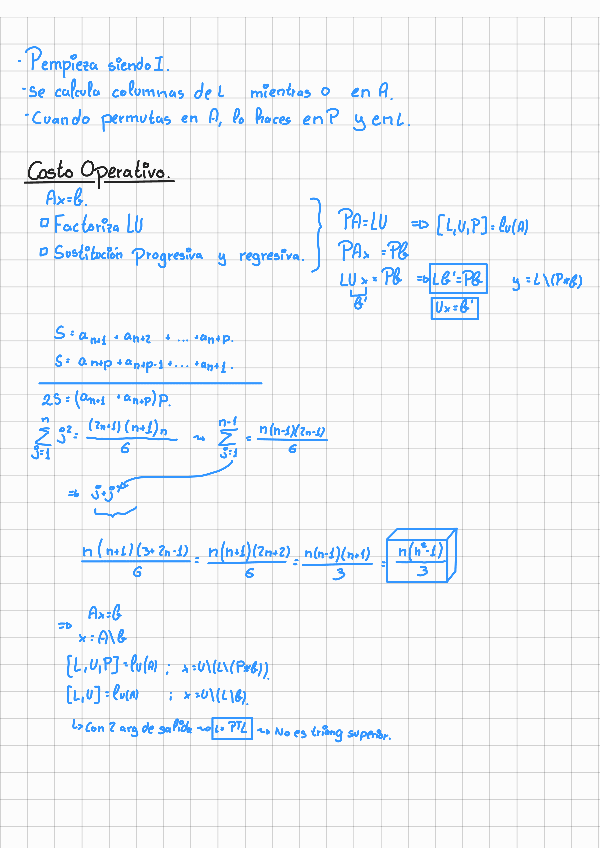 · P empieza siendo I.
· Se calcula columnas de L mientras 0 en A.
· Cuando permutas en A, lo haces en P y en L.
Costo Operativo.
Ax=b.
□ Factoriza LU
□ Sustitución Progresiva y regresiva.
PA=LU ⇒ [L,U,P]=lu(A)
PAx = Pb
LUx = Pb ⇒ Lb'=Pb y=L\(P*b)
b'
Ux=b'
S = a_{n+1} + a_{n+2} + ... + a_{n+p}.
S = a_{n+p} + a_{n+p-1} + ... + a_{n+1}.
2S = (a_{n+1} + a_{n+p})p.
∑_{j=1}^{n} j² = (2n+1)(n+1)n / 6 ⇝ ∑_{j=1}^{n-1} = n(n-1)(2n-1) / 6
⇒ j+j²
n(n+1)(3+2n-1) / 6 = n(n+1)(2n+2) / 6 = n(n-1)(n+1) / 3 = n(n²-1) / 3
⇒ Ax=b
x=A\b
[L,U,P]=lu(A) ; x=U\(L\(P*b))
[L,U]=lu(A) ; x=U\(L\b)
↳ Con 2 arg de salida ⇝ L=PᵀL ⇝ No es triang superior.